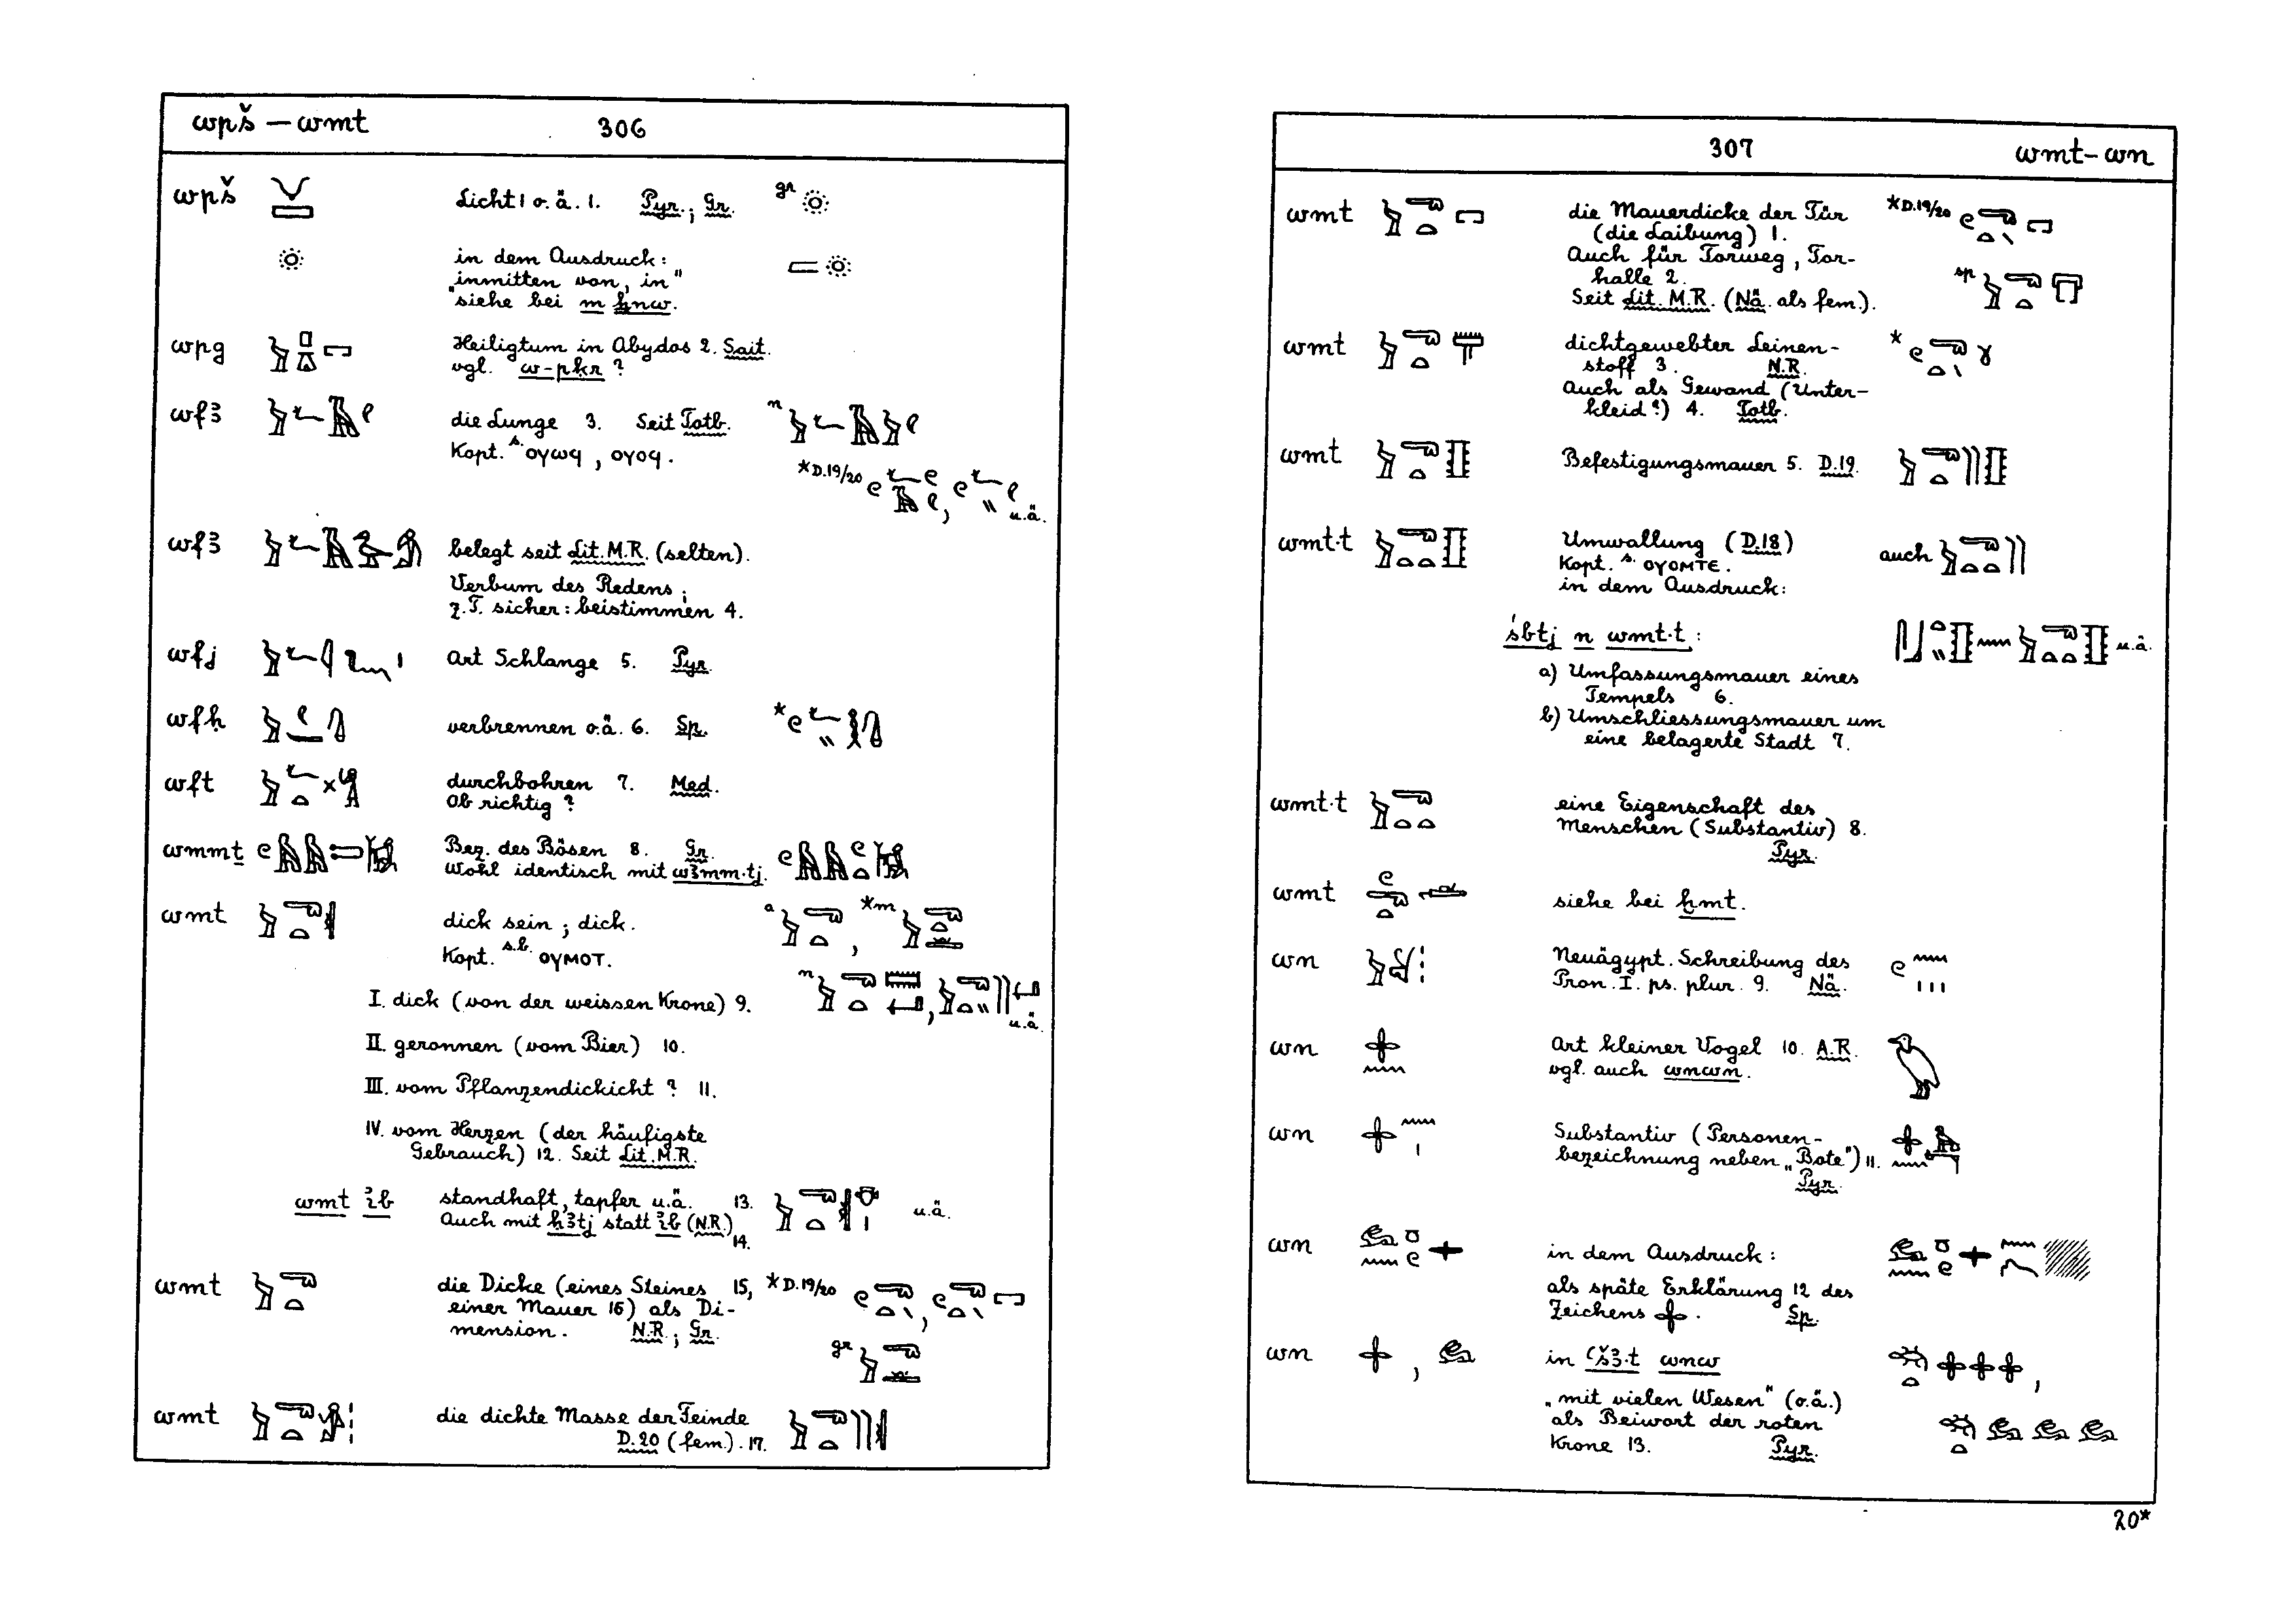 wpš – wmt 306
wpš Licht! o.ä. 1. Pyr.; Gr. gr
in dem Ausdruck:
„inmitten von, in"
siehe bei m ẖnw.
wpg Heiligtum in Abydos 2. Sait.
vgl. w-pḳr ?
wfꜣ die Lunge 3. Seit Totb. n
Kopt. s. ⲟⲩⲱϥ, ⲟⲩⲟϥ.
*D.19/20 , u.ä.
wfꜣ belegt seit Lit. M.R. (selten).
Verbum des Redens;
z.T. sicher: beistimmen 4.
wfj Art Schlange 5. Pyr.
wfḫ verbrennen o.ä. 6. Sp. *
wft durchbohren 7. Med.
Ob richtig ?
wmmṯ Bez. des Bösen 8. Gr.
Wohl identisch mit wꜣmm·tj.
wmt dick sein; dick. a , *m
Kopt. s.b. ⲟⲩⲙⲟⲧ.
n , u.ä.
I. dick (von der weissen Krone) 9.
II. geronnen (vom Bier) 10.
III. vom Pflanzendickicht ? 11.
IV. vom Herzen (der häufigste
Gebrauch) 12. Seit Lit. M.R.
wmt ꞽb standhaft, tapfer u.ä. 13. u.ä.
Auch mit ḥꜣtj statt ꞽb (N.R.)
14.
wmt die Dicke (eines Steines 15, *D.19/20 ,
einer Mauer 16) als Di-
mension. N.R.; Gr.
gr
wmt die dichte Masse der Feinde
D.20 (fem.). 17.
307 wmt – wn
wmt die Mauerdicke der Tür *D.19/20
(die Laibung) 1.
Auch für Torweg, Tor-
halle 2. sp
Seit Lit. M.R. (Nä. als fem.).
wmt dichtgewebter Leinen- *
stoff 3. N.R.
Auch als Gewand (Unter-
kleid ?) 4. Totb.
wmt Befestigungsmauer 5. D.19.
wmt·t Umwallung (D.18) auch
Kopt. s. ⲟⲩⲟⲙⲧⲉ.
in dem Ausdruck:
śbtj n wmt·t: u.ä.
a) Umfassungsmauer eines
Tempels 6.
b) Umschliessungsmauer um
eine belagerte Stadt 7.
wmt·t eine Eigenschaft des
Menschen (Substantiv) 8.
Pyr.
wmt siehe bei ḫmt.
wn Neuägypt. Schreibung des
Pron. I. ps. plur. 9. Nä.
wn Art kleiner Vogel 10. A.R.
vgl. auch wnwn.
wn Substantiv (Personen-
bezeichnung neben „Bote") 11.
Pyr.
wn in dem Ausdruck:
als späte Erklärung 12 des
Zeichens 𓇬. Sp.
wn , in ꜥšꜣ·t wnw ,
„mit vielen Wesen" (o.ä.)
als Beiwort der roten
Krone 13. Pyr.
20*